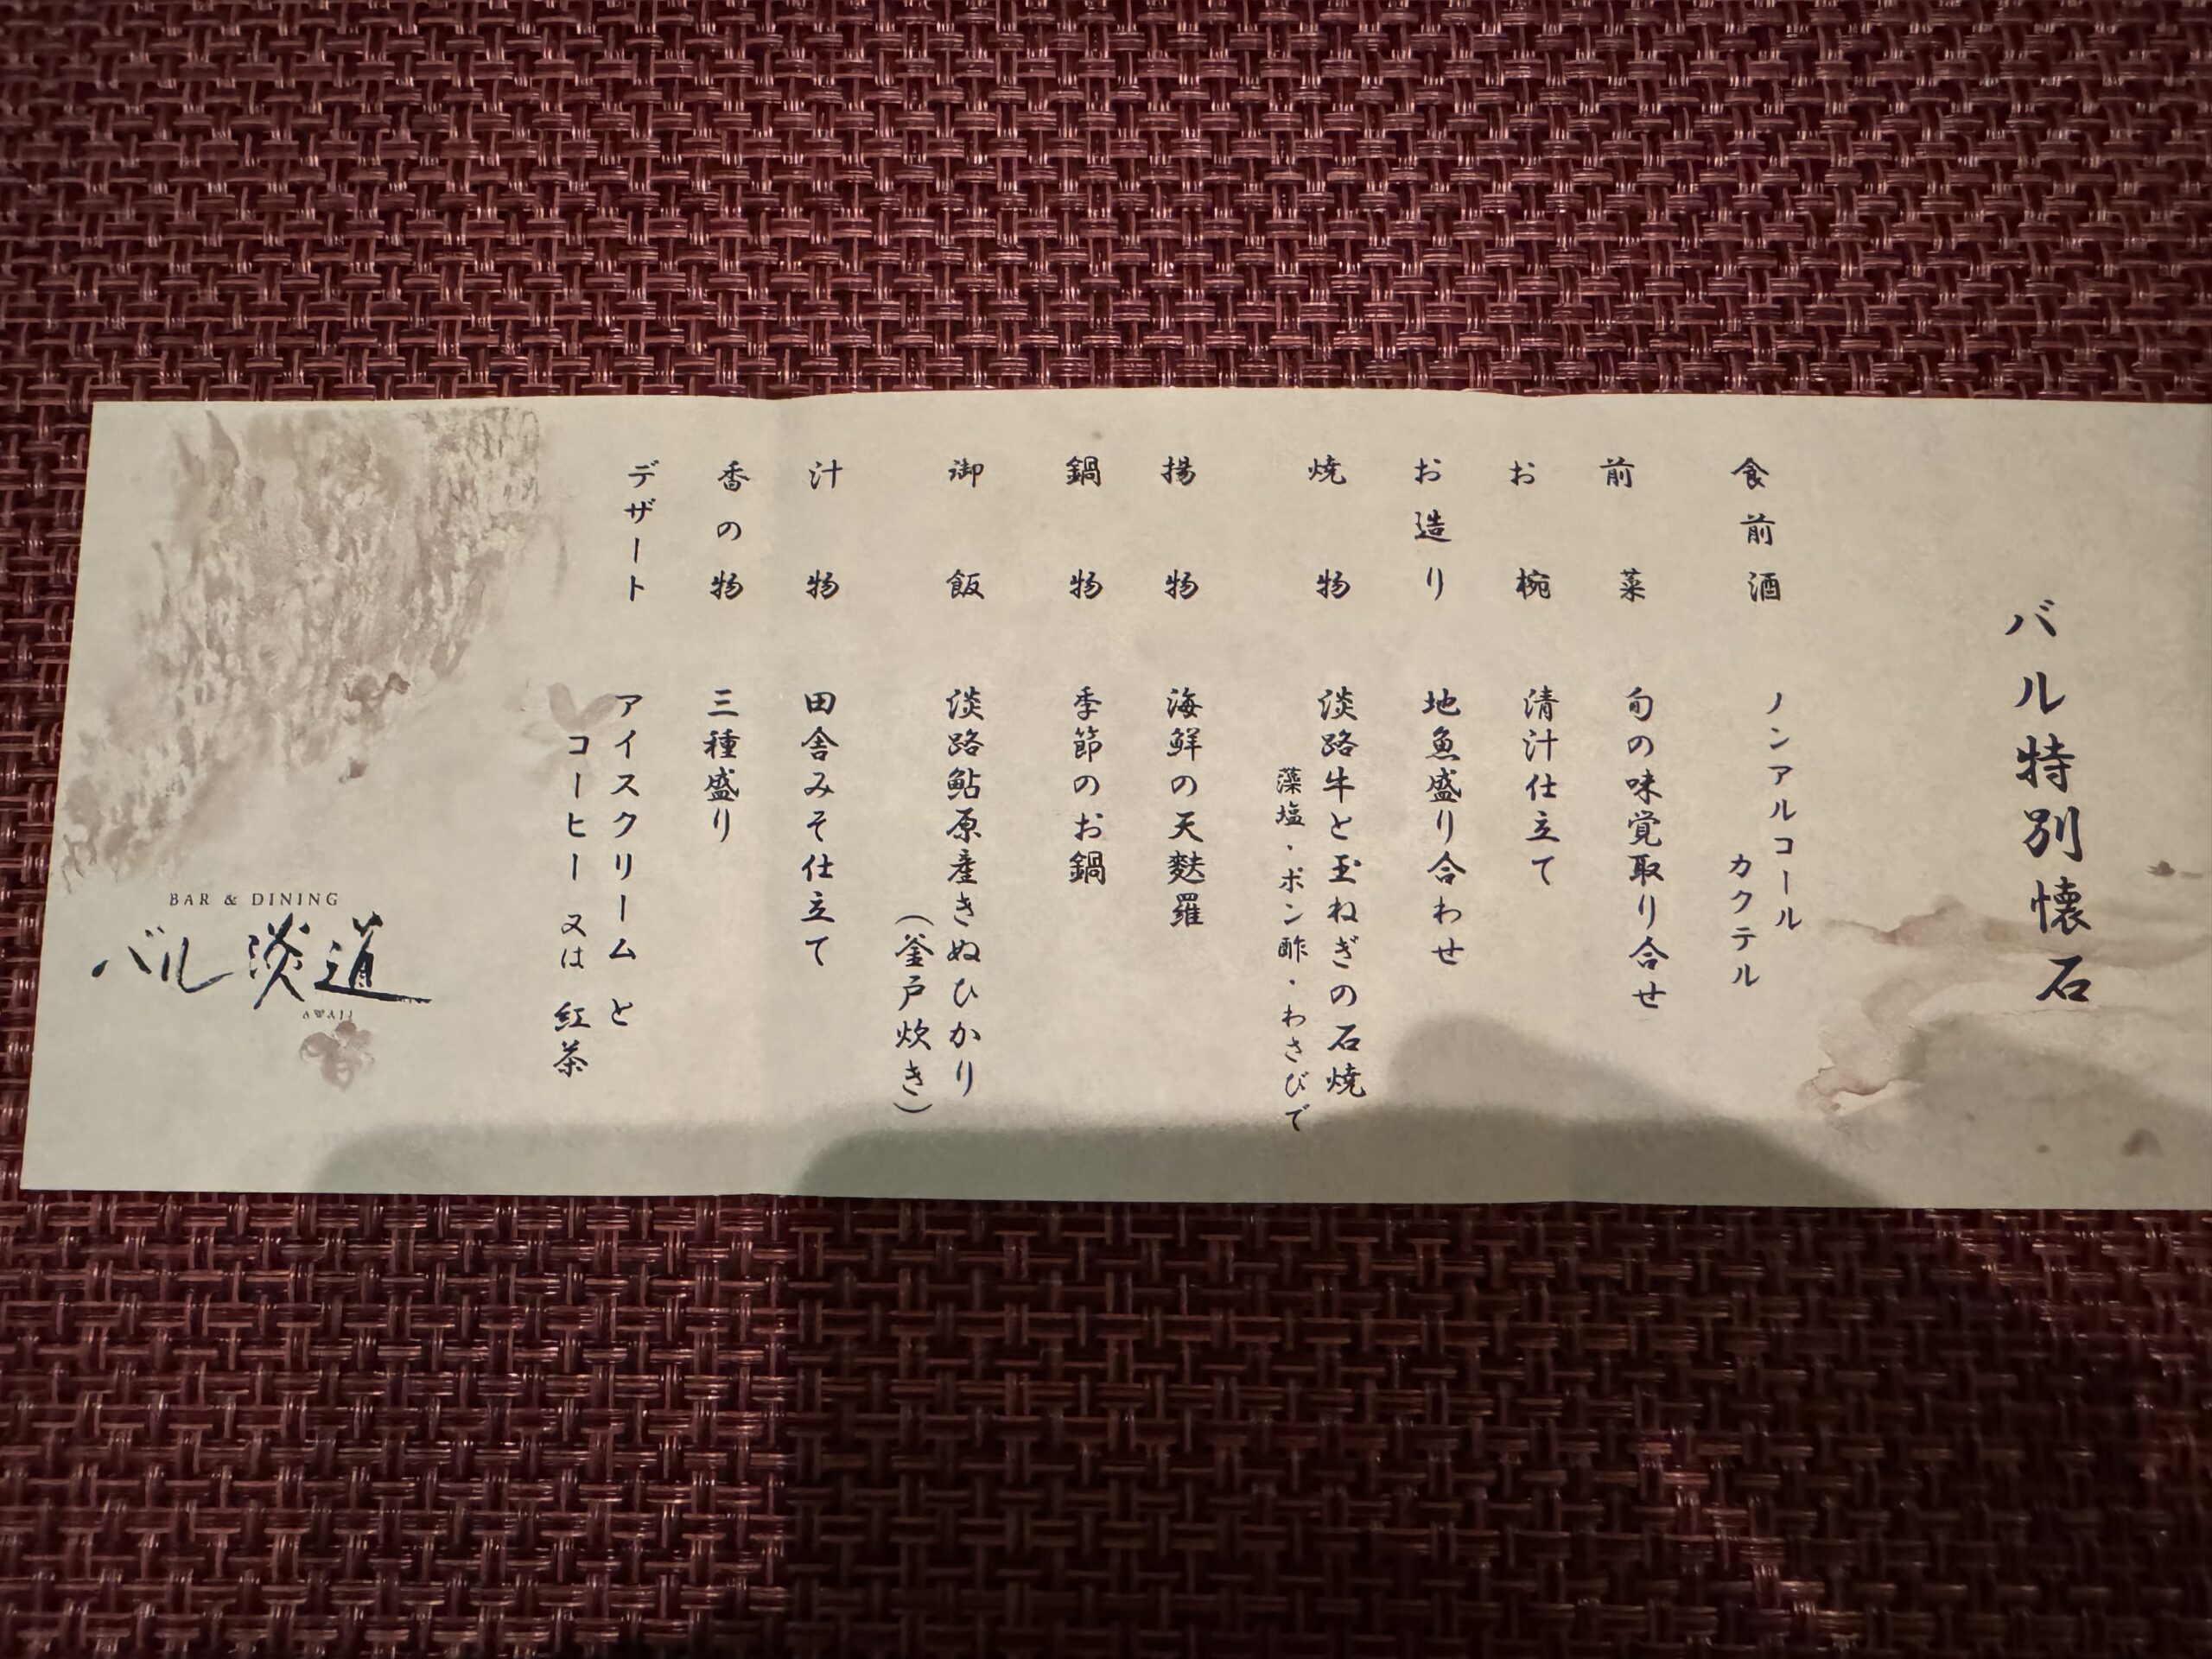 バル特別懐石
食前酒 ノンアルコール
カクテル
前菜 旬の味覚取り合せ
お椀 清汁仕立て
お造り 地魚盛り合わせ
焼物 淡路牛と玉ねぎの石焼
藻塩・ポン酢・わさびで
揚物 海鮮の天麩羅
鍋物 季節のお鍋
御飯 淡路鮎原産きぬひかり
(釜戸炊き)
汁物 田舎みそ仕立て
香の物 三種盛り
デザート アイスクリームと
コーヒー 又は 紅茶
BAR & DINING
バル淡道
AWAJI